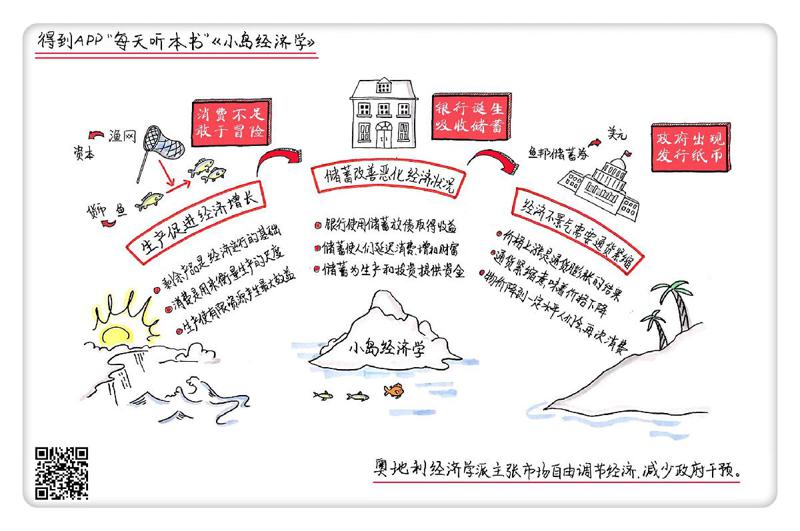 得到APP“每天听本书”《小岛经济学》
消费不足
敢于冒险
渔网
资本
货币
鱼
生产促进经济增长
剩余产品是经济运行的基础
消费是用来衡量生产的尺度
生产使有限资源产生最大效益
银行诞生
吸收储蓄
储蓄改善恶化经济状况
银行使用储蓄放债取得收益
储蓄使人们延迟消费、增加财富
储蓄为生产和投资提供资金
政府出现
发行纸币
美元
鱼邦储蓄券
经济不景气需要通货紧缩
价格上涨是通货膨胀的结果
通货紧缩意味着价格下降
物价降到一定水平人们会再次消费
小岛经济学
奥地利经济学派主张市场自由调节经济,减少政府干预。